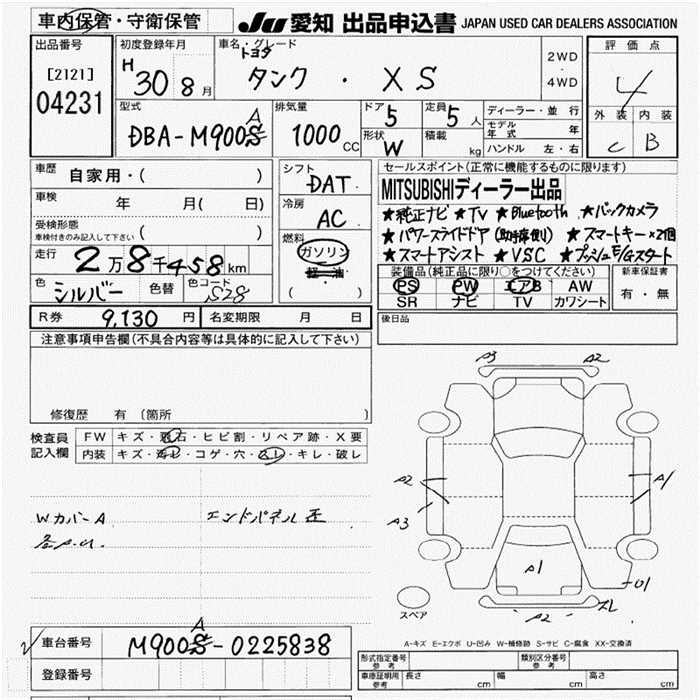 車内保管・守衛保管
JU 愛知 出品申込書 JAPAN USED CAR DEALERS ASSOCIATION
出品番号
[2121]
04231
初度登録年月
H 30 8 月
車名・グレード
トヨタ
タンク ・ XS
2WD
・
4WD
評価点
4
外装 内装
C B
型式
DBA-M900A
排気量
1000 CC
ドア 5
形状 W
定員 5 人
積載 kg
ディーラー・並行
モデル年式 年
ハンドル 左・右
車歴 自家用・( )
車検 年 月( 日)
受検形態
車検付きのみ記入して下さい ( )
走行 2万8千458km
色 シルバー 色替 色コード S28
シフト DAT
冷房 AC
燃料
ガソリン
軽・油
( )
セールスポイント(正常に機能するものに限ります)
MITSUBISHIディーラー出品
★純正ナビ ★TV ★Bluetooth ★バックカメラ
★パワースライドドア(助手席側) ★スマートキー×2個
★スマートアシスト ★VSC ★プッシュE/Gスタート
装備品(純正品に限り○をつけてください) 新車保証書
PS PW エアB AW 有・無
SR ナビ TV カワシート
R券 9,130 円 名変期限 月 日
後日品
注意事項申告欄(不具合内容等は具体的に記入して下さい)
修復歴 有 〔箇所 〕
検査員記入欄
FW キズ・飛石・ヒビ割・リペア跡・X要
内装 キズ・汚レ・コゲ・穴・スレ・キレ・破レ
Wカバー A エンドパネル歪
A3 A2
A2 A1
A3
A1
U1
A2
スペア
A-キズ E-エクボ U-凹み W-補修跡 S-サビ C-腐食 XX-交換済
車台番号 M900A-0225838
登録番号
形式指定番号 参考 類別区分番号 参考
車庫証明用 参考 長さ cm 幅 cm 高さ cm